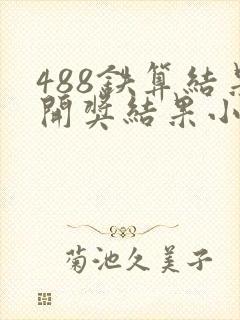 488鉄算结果
開奖结果小
菊池久美子